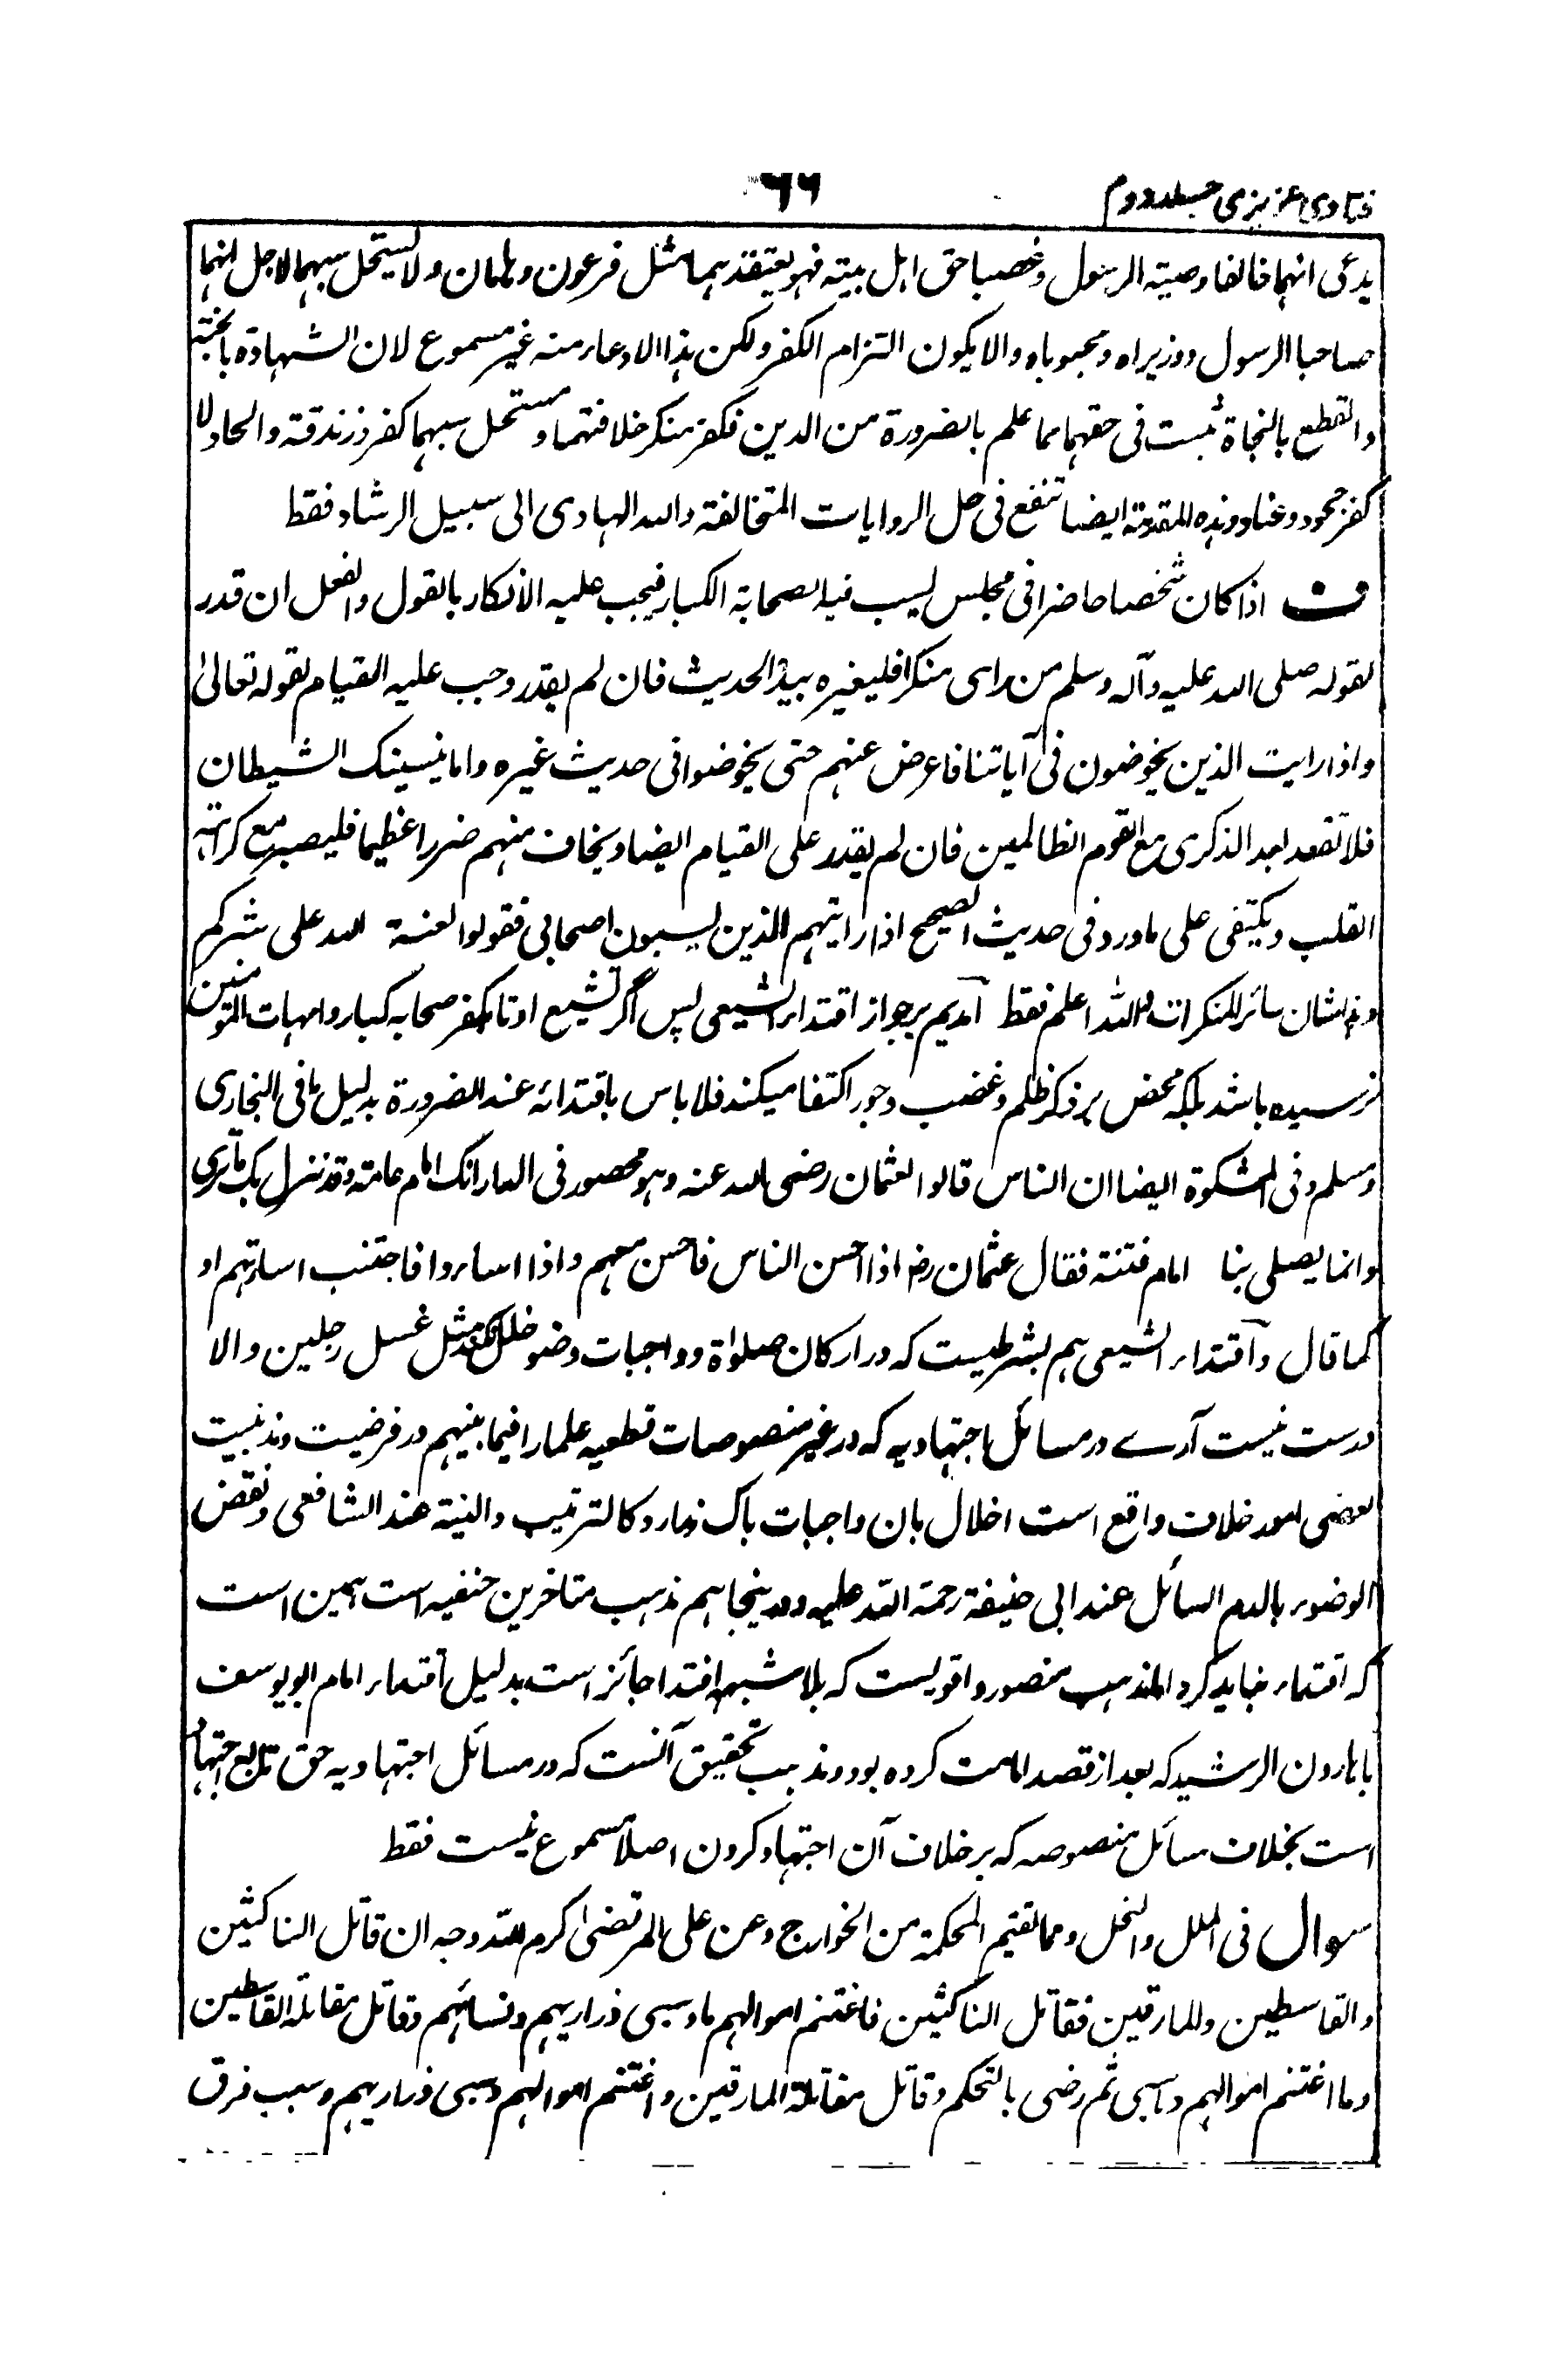 فتاوی عزیزی جلد دوم
٦٦
یدعی انہما خالفا وصیۃ الرسول وغصبا حق اہل بیتہ فہو یعتقد ہما مثل فرعون وہامان ولا یستحل سبہما لاجل انہما
صاحبا الرسول ووزیراہ ومحبوباہ والا یکون التزام الکفر ولکن ہذا الادعاء منہ غیر مسموع لان الشہادۃ بالجنۃ
والقطع بالنجاۃ ثبت فی حقہما مما علم بالضرورۃ من الدین فکفر منکر خلافتہما ومستحل سبہما کفر زندقۃ والحاد لا
کفر جحود وعناد وہذہ المقدمۃ ایضا تنفع فی حل الروایات المتخالفۃ واللہ الہادی الی سبیل الرشاد فقط
ف اذا کان شخصا حاضرا فی مجلس یسب فیہ الصحابۃ الکبار فیجب علیہ الانکار بالقول والفعل ان قدر
لقولہ صلی اللہ علیہ وآلہ وسلم من رای منکرا فلیغیرہ بیدہ الحدیث فان لم یقدر وجب علیہ القیام لقولہ تعالیٰ
واذا رایت الذین یخوضون فی آیاتنا فاعرض عنہم حتی یخوضوا فی حدیث غیرہ واما ینسینک الشیطان
فلا تقعد بعد الذکری مع القوم الظالمین فان لم یقدر علی القیام ایضا ویخاف منہم ضررا عظیما فلیصبر مع کراہۃ
القلب ویکتفی علی ما ورد فی حدیث الصحیح اذا رایتہم الذین یسبون اصحابی فقولوا لعنۃ اللہ علی شرکم
وہذا شان سائر المنکرات واللہ اعلم فقط آمدیم بر جواز اقتداء الشیعی پس اگر تشیع او تا بکفر صحابہ کبار وامہات المومنین
نرسیدہ باشد بلکہ محض بر ذکر ظلم وغضب وجور اکتفا میکند فلا باس باقتدائہ عند الضرورۃ بدلیل ما فی البخاری
ومسلم وفی المشکوۃ ایضا ان الناس قالوا لعثمان رضی اللہ عنہ وہو محصور فی الدار انک امام عامۃ وقد نزل بک ما تری
وانما یصلی بنا امام فتنۃ فقال عثمان رضـ اذا احسن الناس فاحسن معہم واذا اساءوا فاجتنب اساءتہم او
کما قال واقتداء الشیعی ہم بشرطیست کہ در ارکان صلوٰۃ وواجبات وضو خلل نکند مثل غسل رجلین والا
درست نیست آرے در مسائل اجتہادیہ کہ در غیر منصوصات قطعیہ علما را فیما بینہم در فرضیت وندبیت
بعضی امور خلاف واقع است اخلال بان واجبات باک ندارد کالترتیب والنیۃ عند الشافعی ونقض
الوضوء بالدم السائل عند ابی حنیفۃ رحمۃ اللہ علیہ ودرینجا ہم مذہب متاخرین حنفیہ است ہمین است
کہ اقتداء نباید کرد المذہب منصور واقویست کہ بلا شبہہ اقتدا جائز است بدلیل اقتداء امام ابو یوسف
با ہارون الرشید کہ بعد از فصد امامت کردہ بود ومذہب تحقیق آنست کہ در مسائل اجتہادیہ حق تابع اجتہاد
است بخلاف مسائل منصوصہ کہ بر خلاف آن اجتہاد کردن اصلا مسموع نیست فقط
سوال فی الملل والنحل ومما نقتیم المحکمۃ من الخوارج وعن علی المرتضیٰ کرم اللہ وجہ ان قاتل الناکثین
والقاسطین والمارقین فقاتل الناکثین فاغتنم اموالہم ما وسبی ذراریہم ونسائہم وقاتل مقاتلۃ القاسطین
وما اغتنم اموالہم وما سبی ثم رضی بالتحکم وقاتل مقاتلۃ المارقین واغتنم اموالہم وسبی ذراریہم وسبب فرق